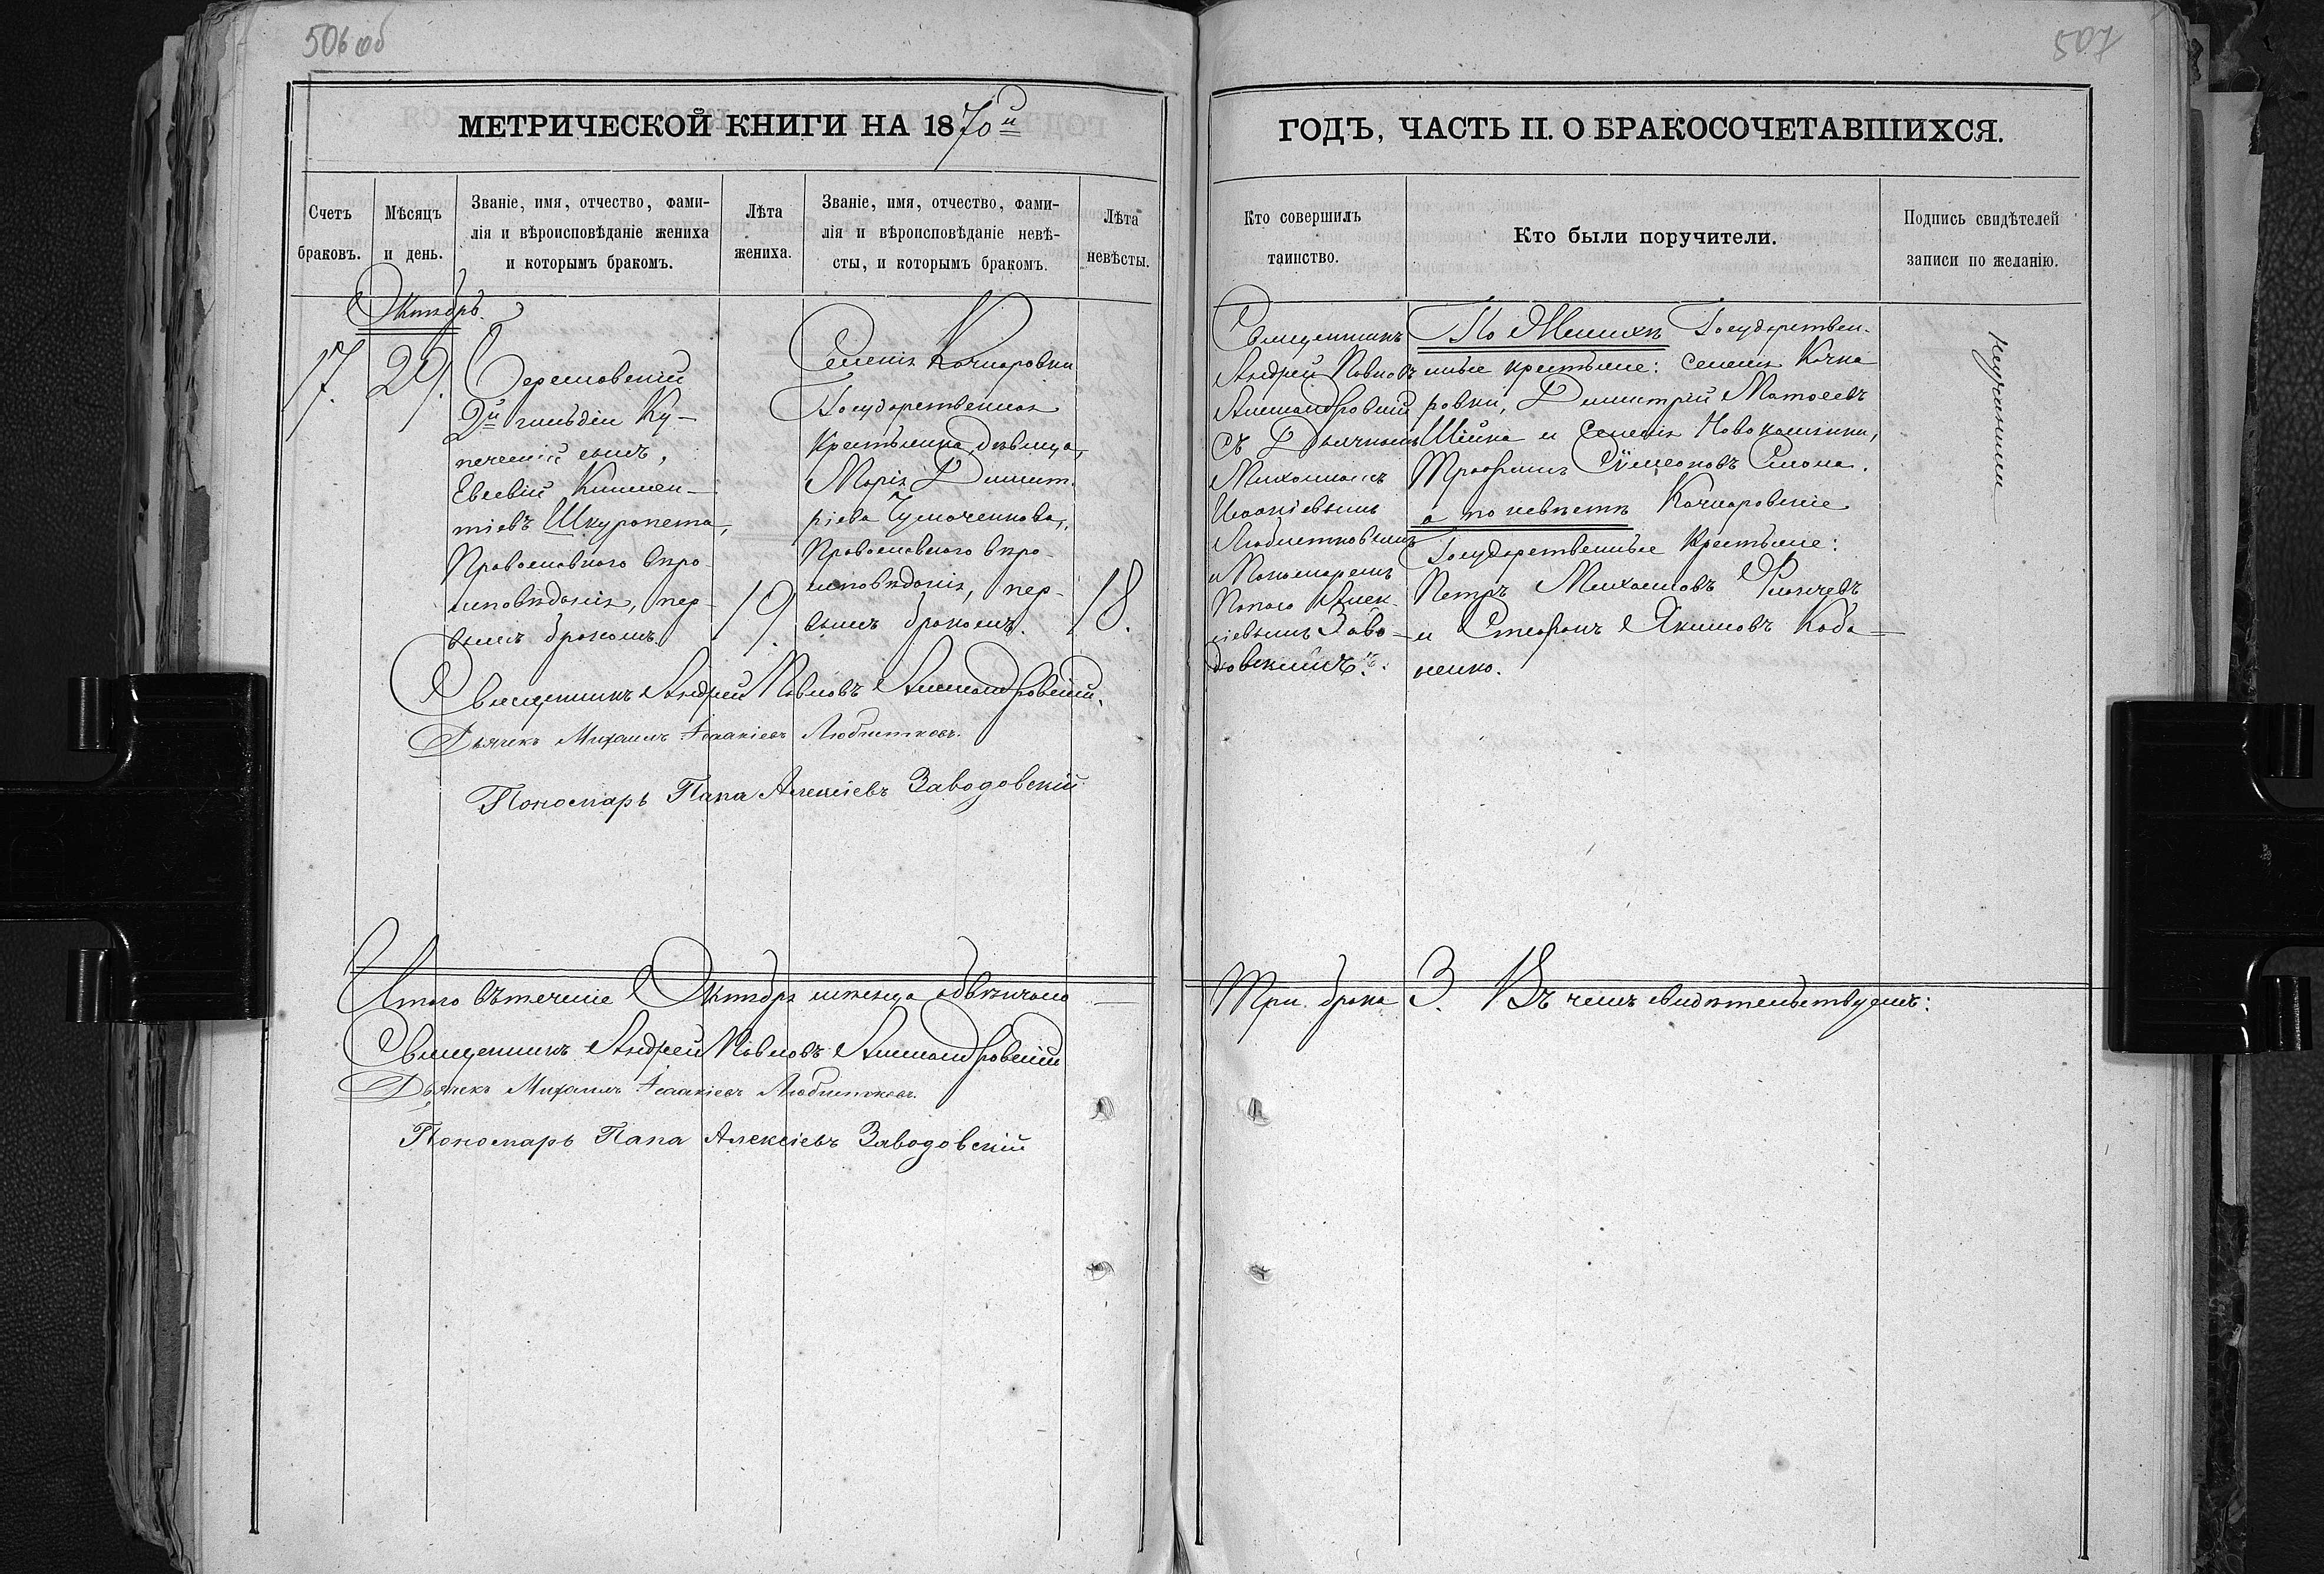 506 об
507
МЕТРИЧЕСКОЙ КНИГИ НА 1870й
ГОДЪ, ЧАСТЬ II. О БРАКОСОЧЕТАВШИХСЯ.
Счетъ браковъ.
Мѣсяцъ и день.
Званіе, имя, отчество, фами-
лія и вѣроисповѣданіе жениха
и которымъ бракомъ.
Лѣта жениха.
Званіе, имя, отчество, фами-
лія и вѣроисповѣданіе невѣ-
сты, и которымъ бракомъ.
Лѣта невѣсты.
Кто совершилъ таинство.
Кто были поручители.
Подпись свидѣтелей
записи по желанію.
Октябрь.
17.
29.
2й гильдіи Ку-
печескій сынъ,
Евсевій Климен-
тіевъ Шкуропета,
Православнаго вѣро-
исповѣданія, пер-
вымъ бракомъ.
19.
Селенія Качкаровки
Государственная
Крестьянка, дѣвица,
Марія Димит-
ріева Чумаченкова,
Православнаго вѣро-
исповѣданія, пер-
вымъ бракомъ.
18.
Священникъ
Андрей Павловъ
Александровскій
съ Дьячкомъ
Михаиломъ
Исаакіевымъ
Любистковымъ
и Пономаремъ
Папою Алек-
сіевымъ Заво-
довскимъ.
По Женихѣ Государствен-
ные крестьяне: селенія Качка
ровки, Димитрій Матѳеевъ
Шійка и селенія Новокаменки,
Трофимъ Сѵмеоновъ Смола.
а по невѣстѣ Качкаровскіе
Государственные Крестьяне:
Петръ Михаиловъ
и Стефанъ Якимовъ Коба-
ненко.
неграмотны
Священникъ Андрей Павловъ Александровскій.
Дьячекъ Михаилъ Исаакіевъ Любистковъ.
Пономарь Папа Алексіевъ Заводовскій
Итого въ теченіе Октября мѣсяца обвѣнчано
Три брака 3. Въ чемъ свидѣтельствуемъ:
Священникъ Андрей Павловъ Александровскій
Дьячекъ Михаилъ Исаакіевъ Любистковъ.
Пономарь Папа Алексіевъ Заводовскій